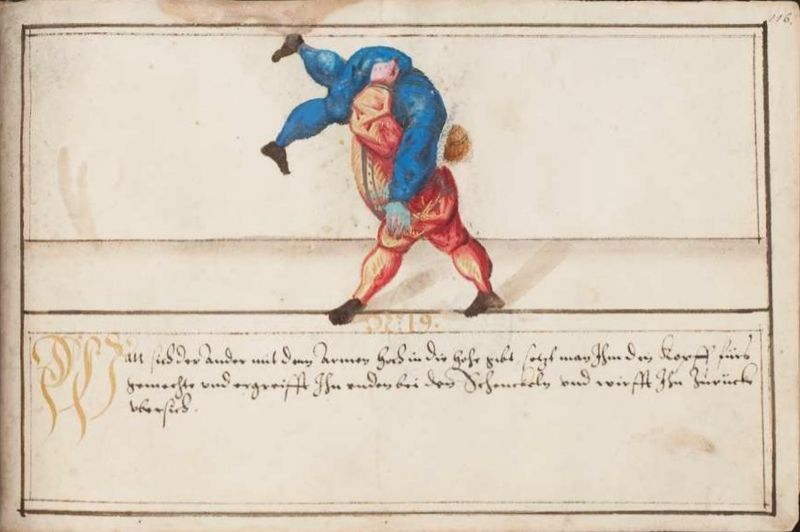 116.
No: 19.
Wan sich der Ander mit dem Armen hoch in die höhe gibt setzt man Ihm den Kopff fürs
gemechte vnd ergreifft Ihn vnden bei den Schenckeln vnd wirfft Ihn Zurück
vbersich.